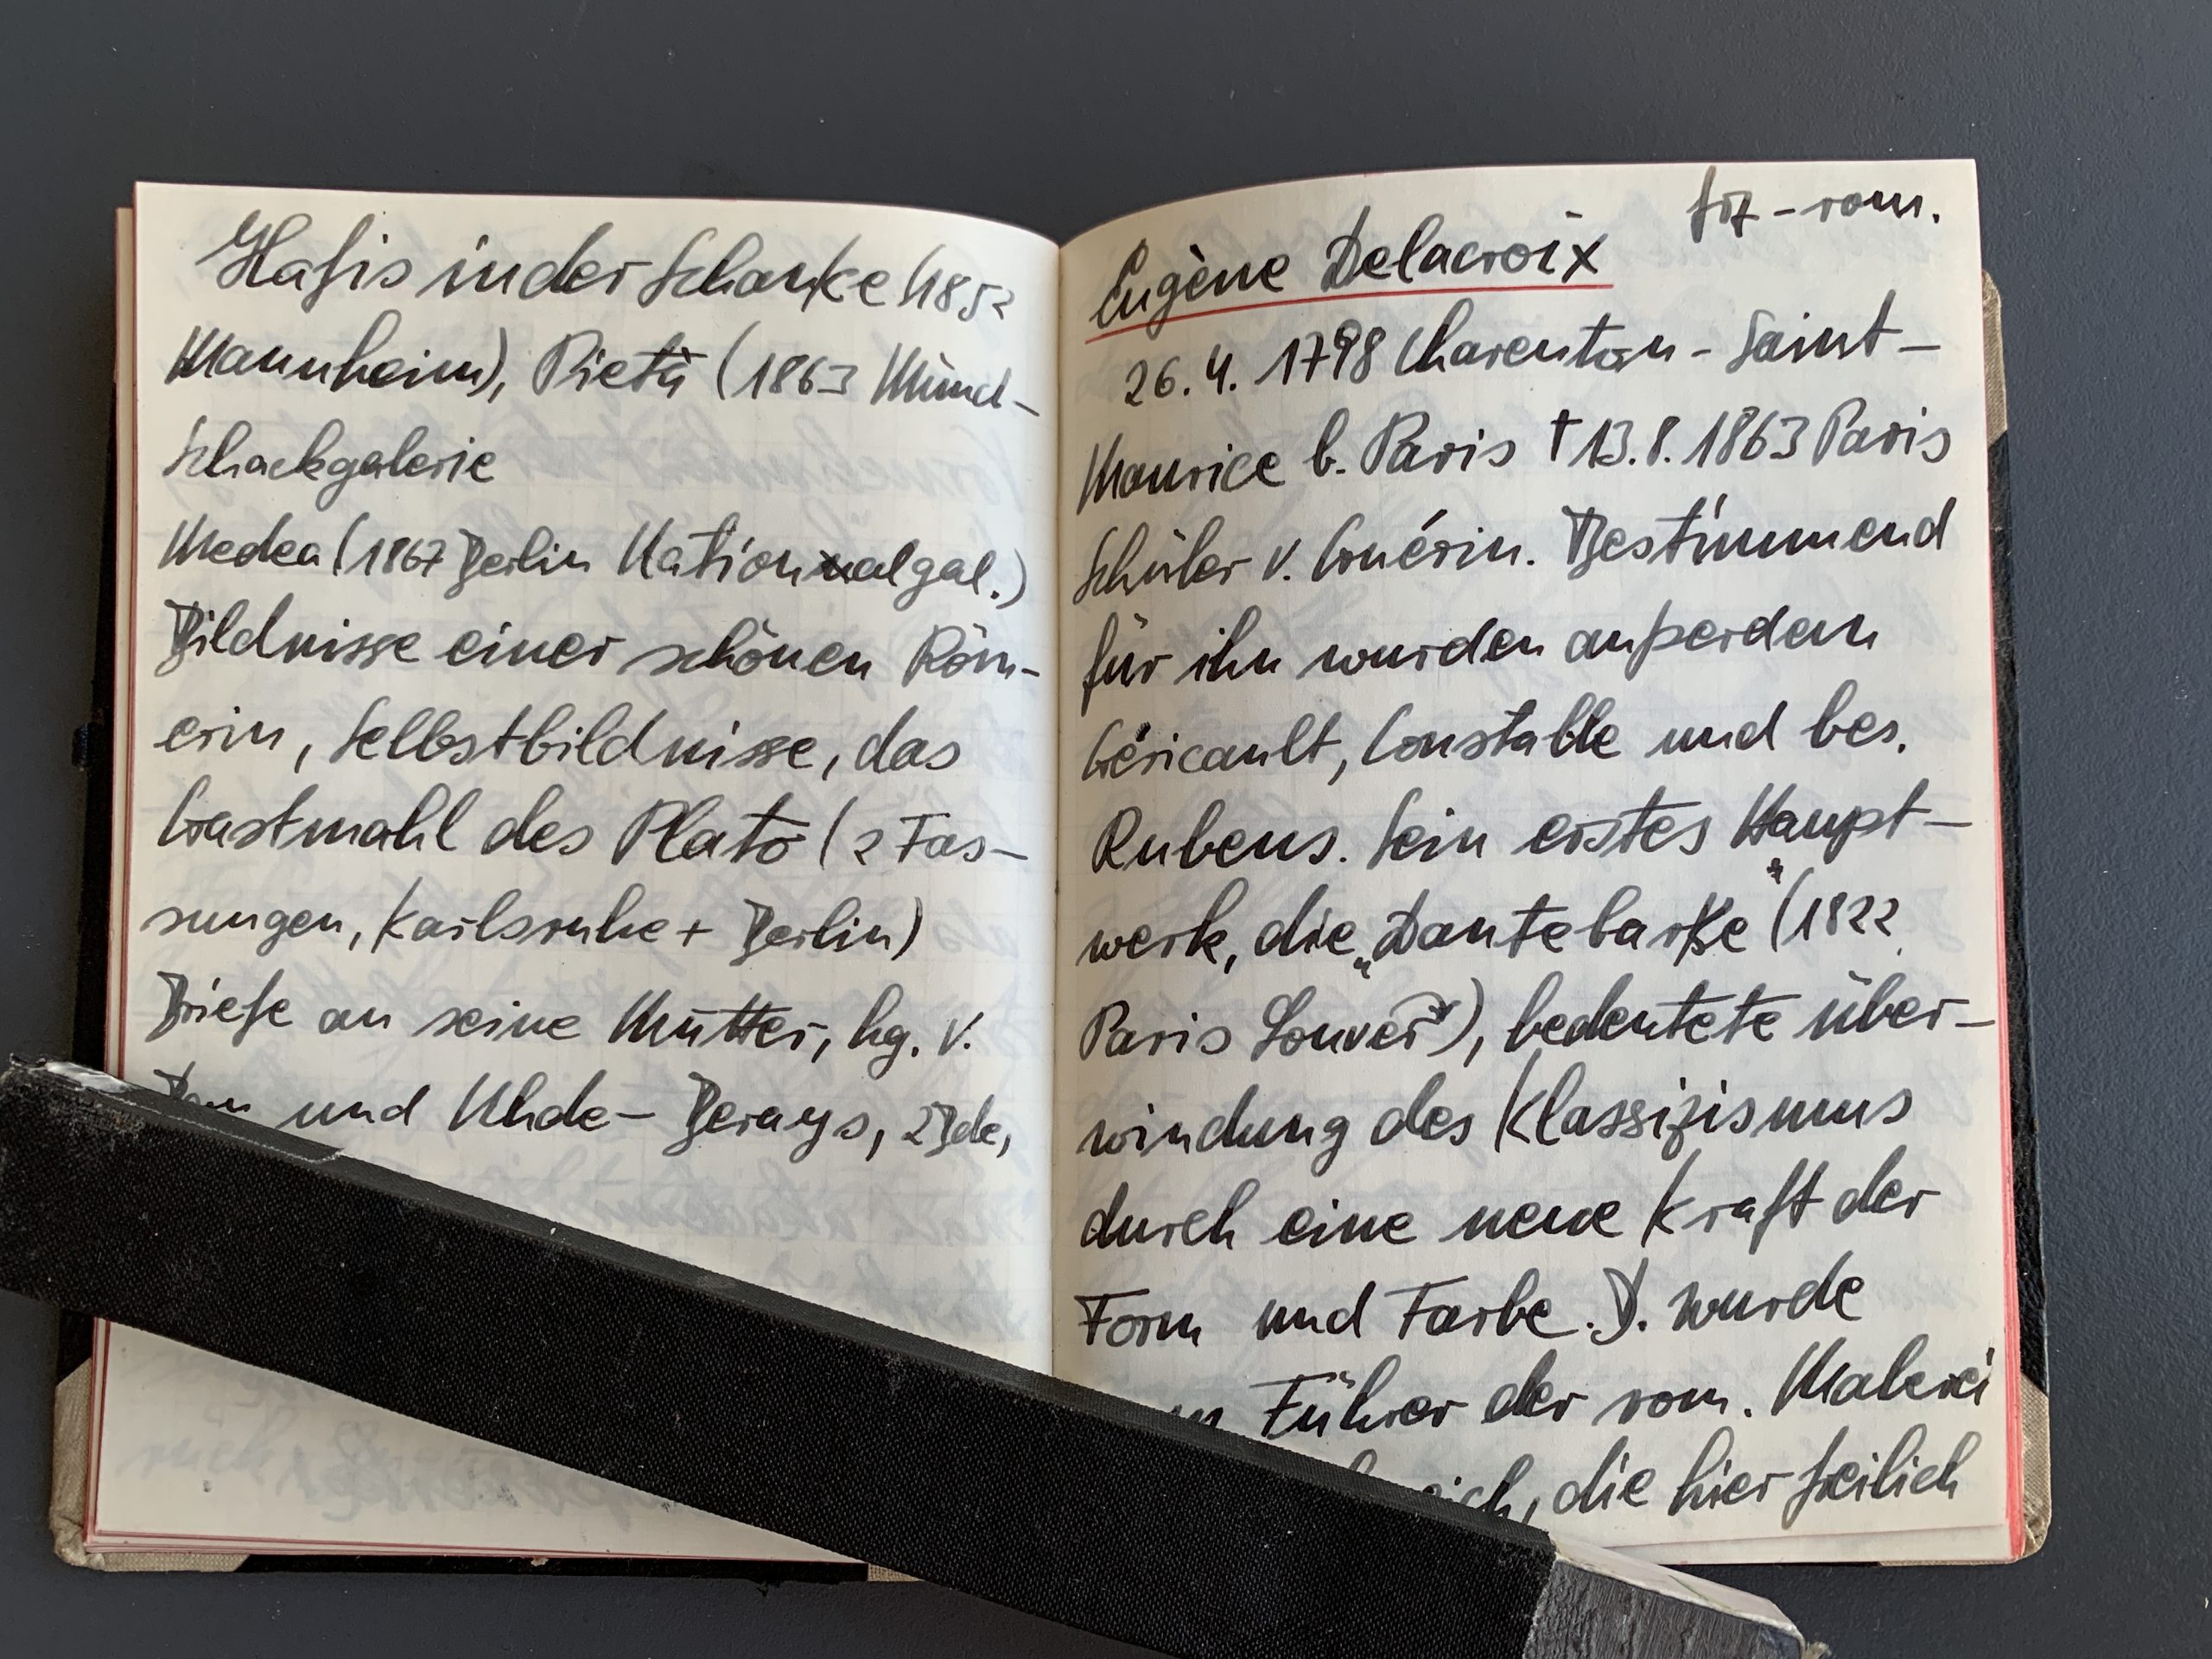 Hafis in der Schanke (1852
Mannheim), Pietà (1863 Münch-
Schackgalerie
Medea (1867 Berlin Nationalgal.)
Bildnisse einer schönen Röm-
erin, Selbstbildnisse, das
Gastmahl des Plato (2 Fas-
sungen, Karlsruhe + Berlin)
Briefe an seine Mutter, hg. v.
und Uhde- Berays, 2 Bde,
frz - rom.
Eugène Delacroix
26. 4. 1798 Charenton - Saint-
Maurice b. Paris † 13. 8. 1863 Paris
Schüler v. Guérin. Bestimmend
für ihn wurden außerdem
Géricault, Constable und bes.
Rubens. Sein erstes Haupt-
werk, die „Dantebarke“ (1822
Paris Louver), bedeutete über-
windung des Klassizismus
durch eine neue Kraft der
Form und Farbe. D. wurde
Führer der rom. Malerei
die hier freilich